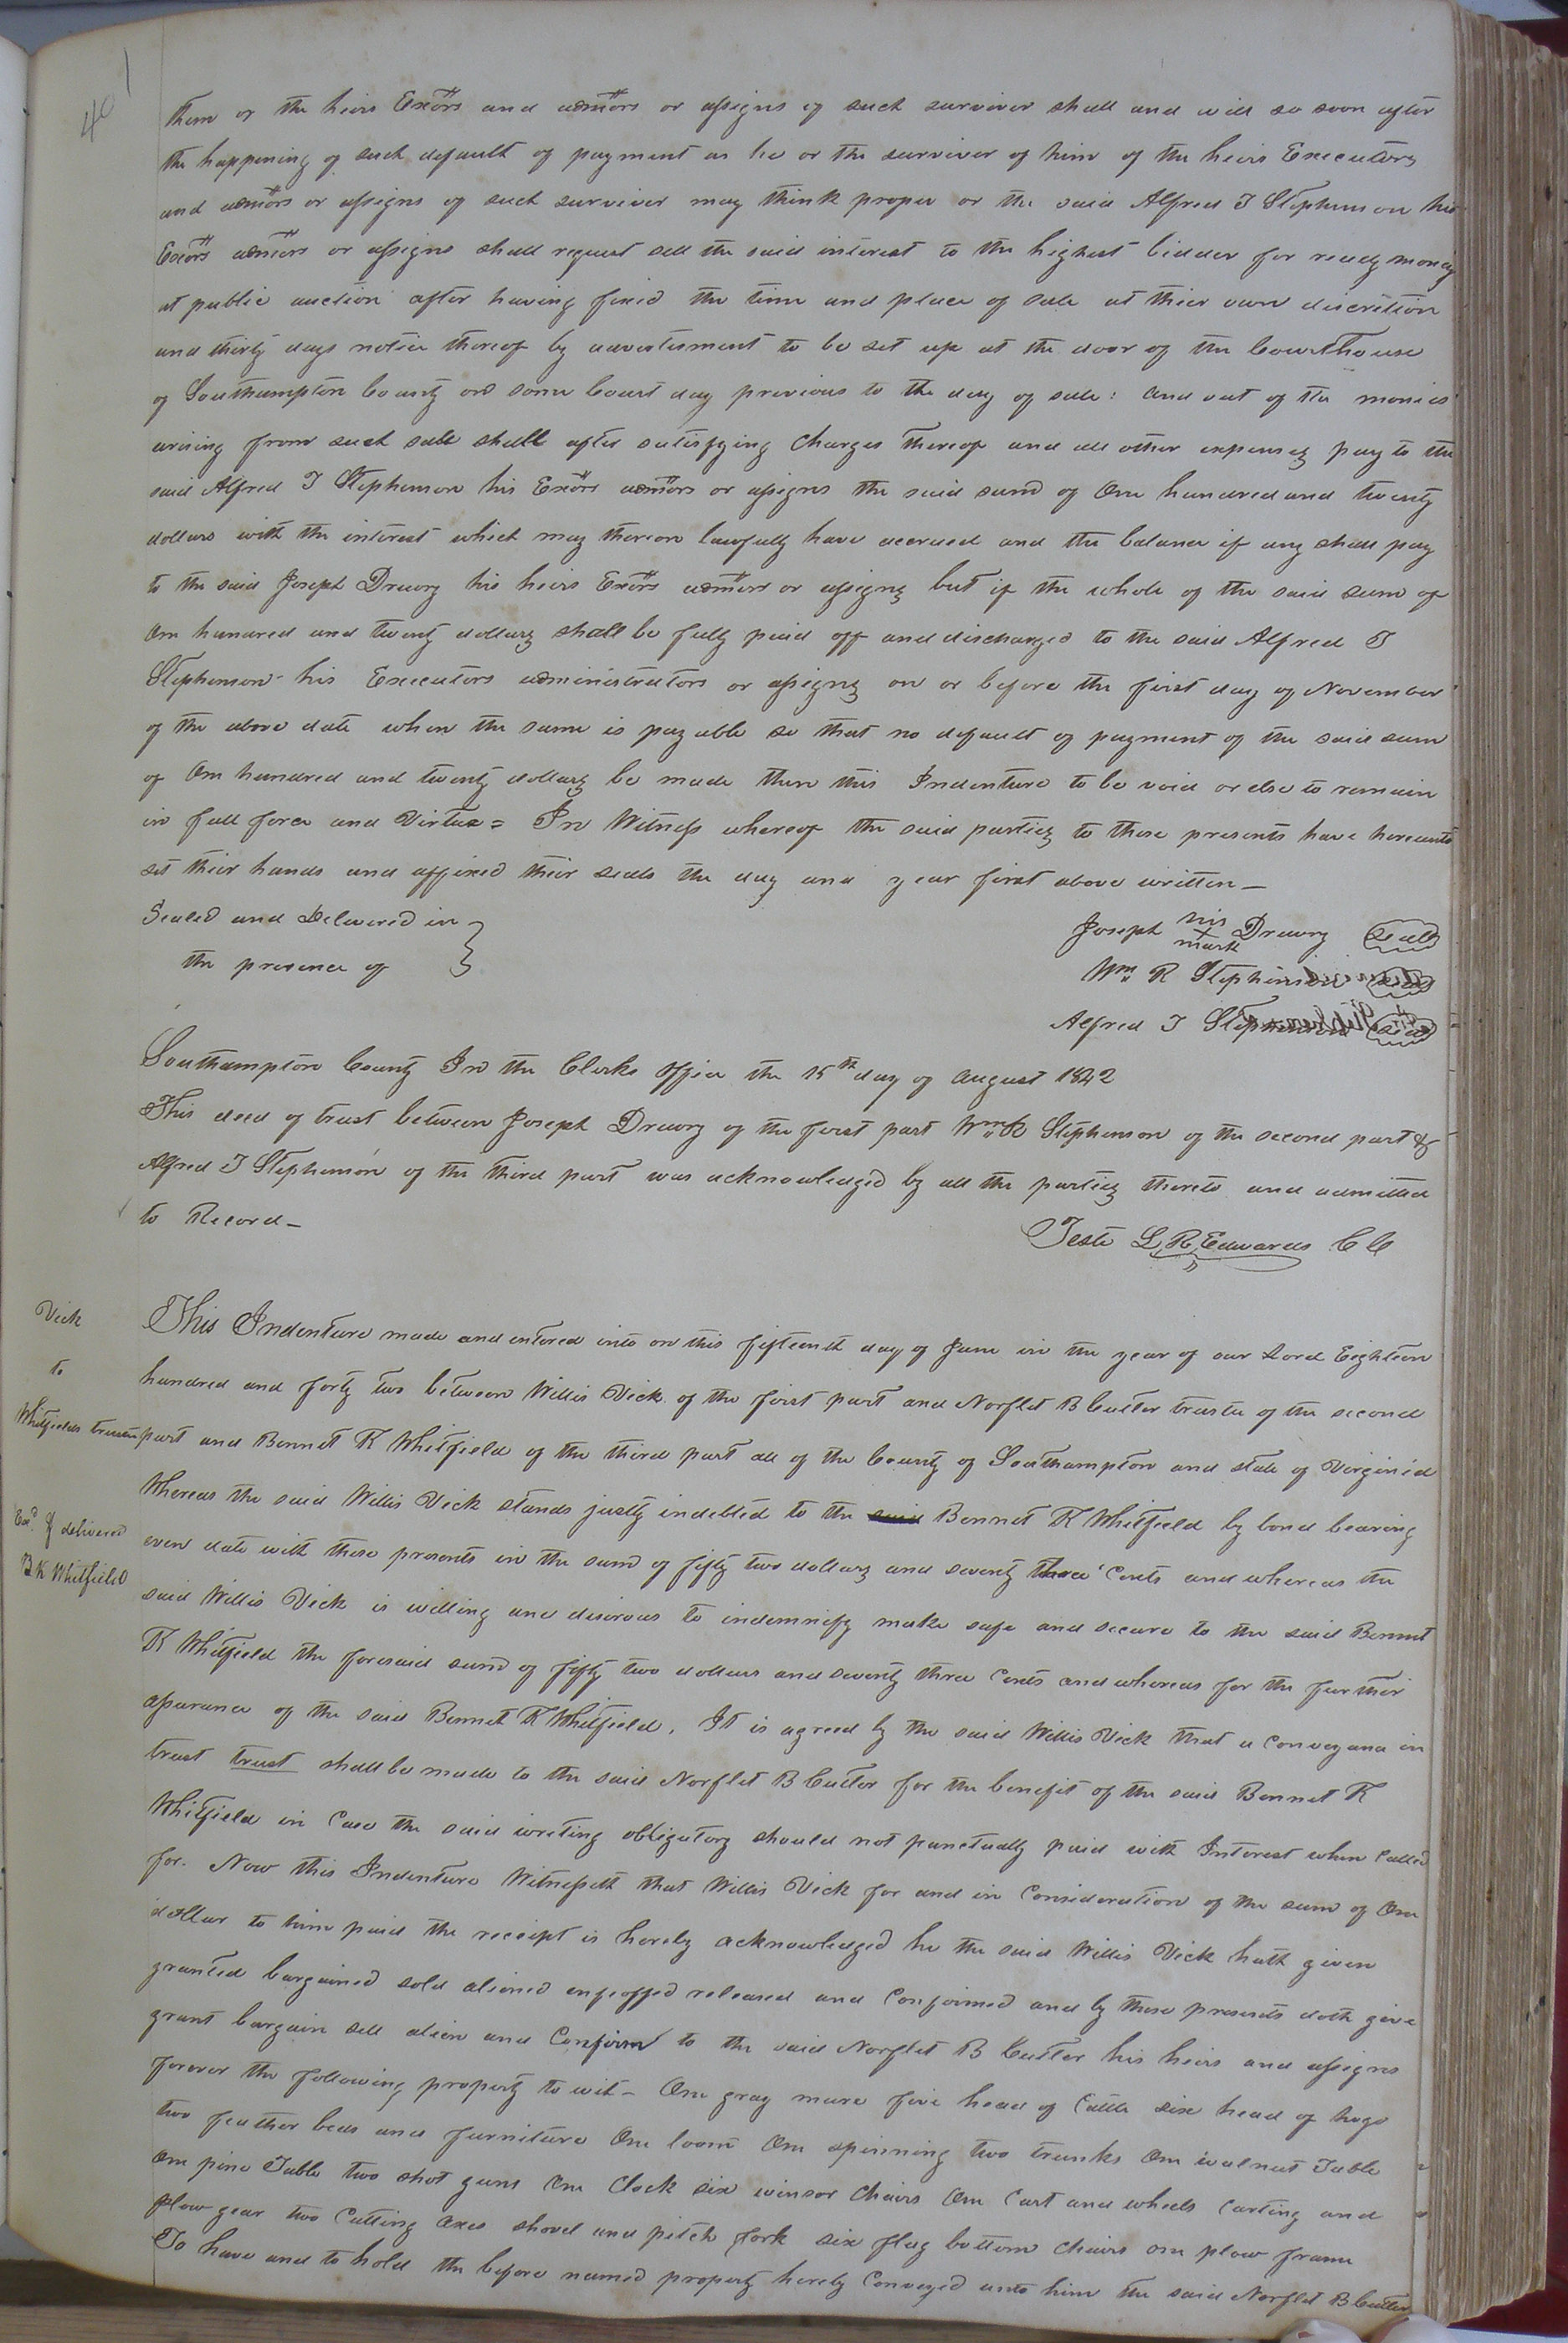 401
them or the heirs Exors and admors or assigns of such survivor shall and will so soon after
the happening of such default of payment as he or the survivor of him of the heirs Executors
and admors or assigns of such survivor may think proper or the said Alfred J Stephenson his
Exors admors or assigns shall request sell the said interest to the highest bidder for ready money
at public auction after having fixed the time and place of sale at thier own discretion
and thirty days notice thereof by advertisment to be set up at the door of the Courthouse
of Southampton County on some Court day previous to the day of sale: and out of the monies
arising from such sale shall after satisfying Charges thereof and all other expenses pay to the
said Alfred J Stephenson his Exors admors or assigns the said sum of One hundred and twenty
dollars with the interest which may thereon lawfully have accrued and the balance if any shall pay
to the said Joseph Drewry his heirs Exors admors or assigns but if the whole of the said sum of
One hundred and twenty dollars shall be fully paid off and discharged to the said Alfred J
Stephenson his Executors administrators or assigns on or before the first day of November
of the above date when the same is payable so that no default of payment of the said sum
of One hundred and twenty dollars be made then this Indenture to be void or else to remain
in full force and Virtue = In Witness whereof the said parties to these presents have hereunto
set their hands and affixed their seals the day and year first above written —
Sealed and Delivered in
the presence of
Joseph his x mark Drewry seal
Wm R Stephenson seal
Alfred J Stephenson seal
Southampton County In the Clerks Office the 15th day of August 1842
This deed of trust between Joseph Drewry of the first part Wm R Stephenson of the second part &
Alfred J Stephenson of the third part was acknowledged by all the parties thereto and admitted
to Record —
Teste L R Edwards C C
Vick
to
Whitfields trustee
Exd & delivered
B K Whitfield
This Indenture made and entered into on this fifteenth day of June in the year of our Lord Eighteen
hundred and forty two between Willis Vick of the first part and Norflet B Cutler trustee of the second
part and Bennet K Whitfield of the third part all of the County of Southampton and state of Virginia
Whereas the said Willis Vick stands justly indebted to the said Bennet K Whitfield by bond bearing
even date with these presents in the sum of fifty two dollars and seventy three Cents and whereas the
said Willis Vick is willing and desirous to indemnify make safe and secure to the said Bennet
K Whitfield the foresaid sum of fifty two dollars and seventy three Cents and whereas for the further
assurance of the said Bennet K Whitfield. It is agreed by the said Willis Vick that a Conveyance in
trust trust shall be made to the said Norflet B Cutler for the benefit of the said Bennet K
Whitfield in Case the said writing obligatory should not punctually paid with Interest when Called
for. Now this Indenture Witnesseth that Willis Vick for and in Consideration of the sum of One
dollar to him paid the receipt is hereby acknowledged he the said Willis Vick hath given
granted bargained sold aliened enfeoffed released and Confirmed and by these presents doth give
grant bargain sell alien and Confirm to the said Norflet B Cutler his heirs and assigns
forever the following property to wit — One gray mare five head of Cattle six head of hogs
two feather beds and furniture One loom One spinning two trunks One walnut Table
One pine Table two shot guns One Clock six winsor Chairs One Cart and wheels Carting and
plow gear two Cutting Axes shovel and pitch fork six flag bottom Chairs one plow frame
To have and to hold the before named property hereby Conveyed unto him the said Norflet B Cutler